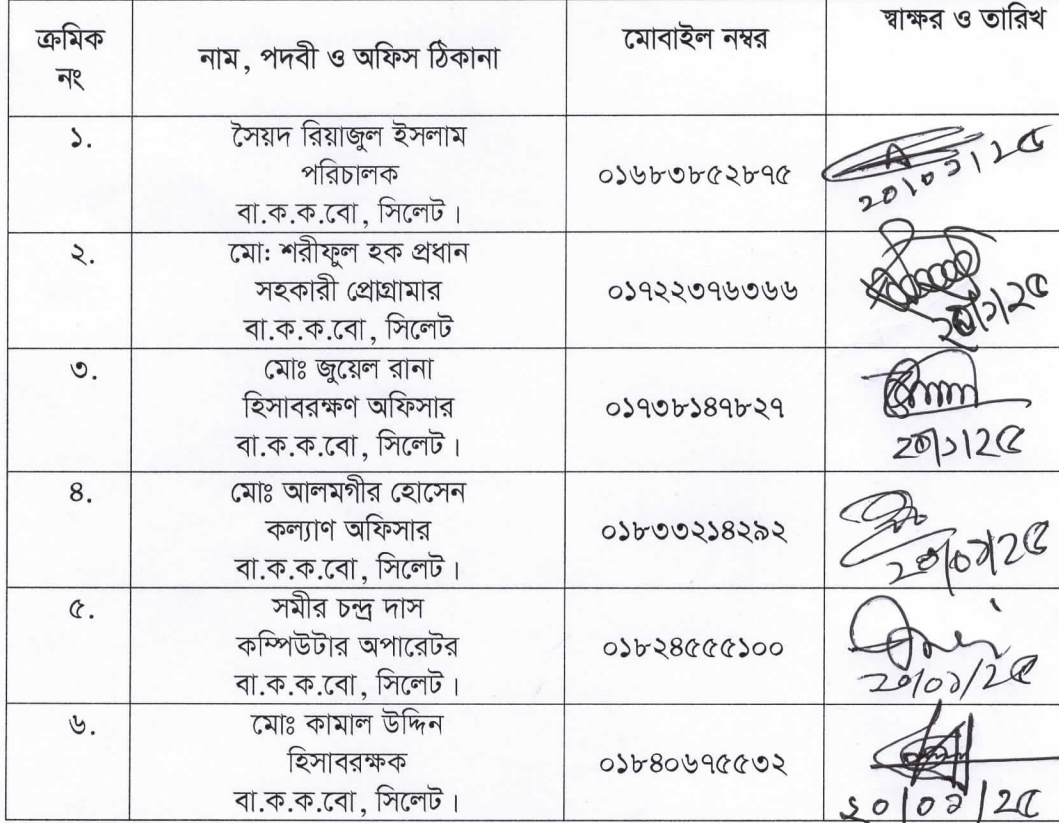 ক্রমিক নং নাম, পদবী ও অফিস ঠিকানা মোবাইল নম্বর স্বাক্ষর ও তারিখ
১. সৈয়দ রিয়াজুল ইসলাম
পরিচালক
বা.ক.ক.বো, সিলেট। ০১৬৮৩৮৫২৮৭৫ 20/০১/2৫
২. মো: শরীফুল হক প্রধান
সহকারী প্রোগ্রামার
বা.ক.ক.বো, সিলেট ০১৭২২৩৭৬৩৬৬
৩. মোঃ জুয়েল রানা
হিসাবরক্ষণ অফিসার
বা.ক.ক.বো, সিলেট। ০১৭৩৮১৪৭৮২৭ 20/১/2৫
৪. মোঃ আলমগীর হোসেন
কল্যাণ অফিসার
বা.ক.ক.বো, সিলেট। ০১৮৩৩২১৪২৯২ 20/০১/2৫
৫. সমীর চন্দ্র দাস
কম্পিউটার অপারেটর
বা.ক.ক.বো, সিলেট। ০১৮২৪৫৫৫১০০ 20/০১/2৫
৬. মোঃ কামাল উদ্দিন
হিসাবরক্ষক
বা.ক.ক.বো, সিলেট। ০১৮৪০৬৭৫৫৩২ ২০/০১/2৫